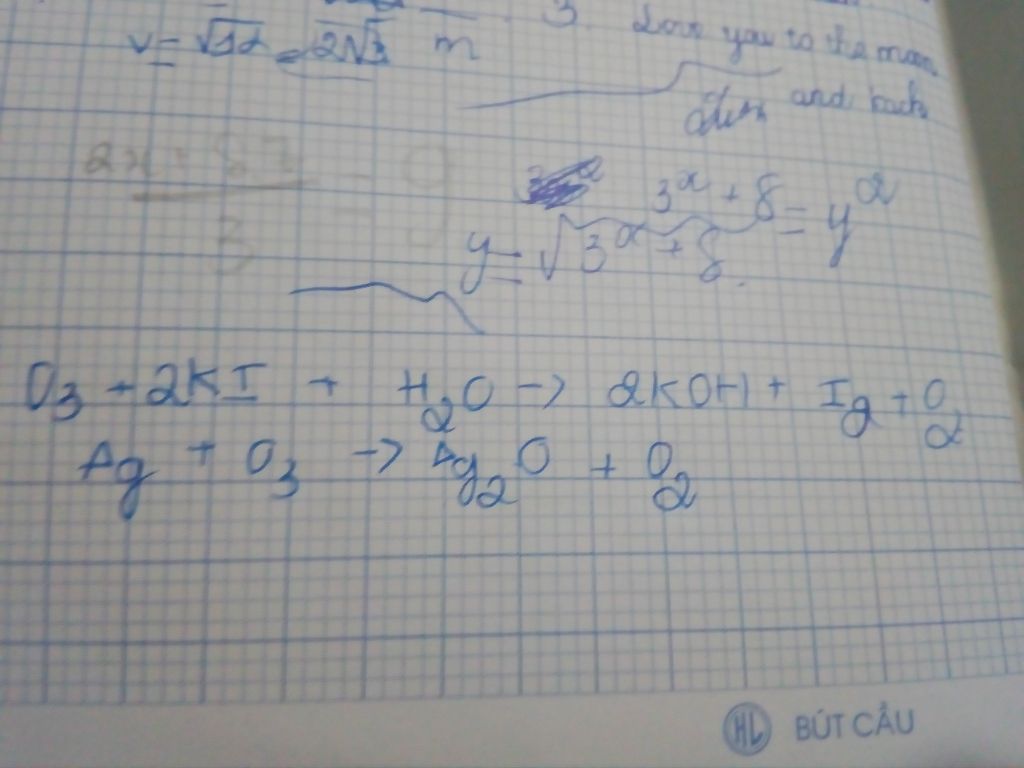 v = √12 = 2√3 m
3. Love you to the moon
and back
3^x + 8 = y^2
y = √3^x + 8.
O3 + 2KI + H2O → 2KOH + I2 + O2
Ag + O3 → Ag2O + O2
HL BÚT CẦU